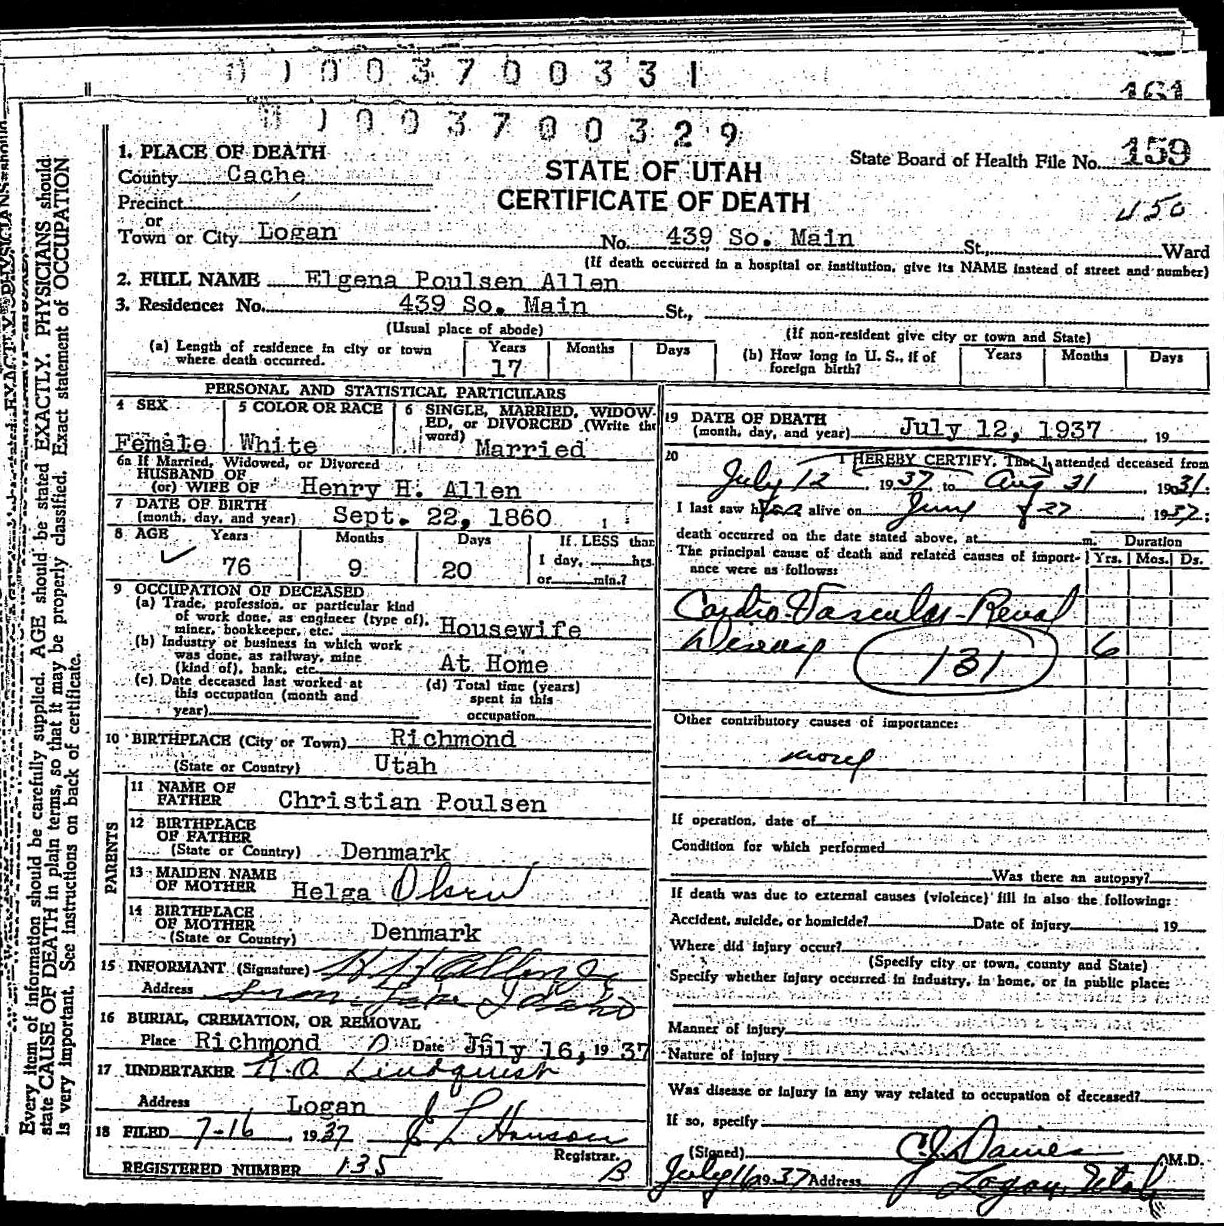 0 0 3 7 0 0 3 3 1
161
0 0 3 7 0 0 3 2 9
1. PLACE OF DEATH
County Cache
Precinct
or
Town or City Logan
STATE OF UTAH
CERTIFICATE OF DEATH
State Board of Health File No. 159
450
No. 439 So. Main St., Ward
(If death occurred in a hospital or institution, give its NAME instead of street and number)
2. FULL NAME Elgena Poulsen Allen
3. Residence: No. 439 So. Main St.,
(Usual place of abode) (If non-resident give city or town and State)
(a) Length of residence in city or town where death occurred. Years 17 Months Days
(b) How long in U. S., if of foreign birth? Years Months Days
PERSONAL AND STATISTICAL PARTICULARS
4 SEX Female
5 COLOR OR RACE White
6 SINGLE, MARRIED, WIDOWED, or DIVORCED (Write the word) Married
6a If Married, Widowed, or Divorced
HUSBAND OF
(or) WIFE OF Henry H. Allen
7 DATE OF BIRTH
(month, day, and year) Sept. 22, 1860
8 AGE Years 76 Months 9 Days 20 If LESS than 1 day, hrs. or min.?
9 OCCUPATION OF DECEASED
(a) Trade, profession, or particular kind
of work done, as engineer (type of),
miner, bookkeeper, etc. Housewife
(b) Industry or business in which work
was done, as railway, mine
(kind of), bank, etc. At Home
(c) Date deceased last worked at
this occupation (month and
year)
(d) Total time (years)
spent in this
occupation
10 BIRTHPLACE (City or Town) Richmond
(State or Country) Utah
PARENTS
11 NAME OF
FATHER Christian Poulsen
12 BIRTHPLACE
OF FATHER
(State or Country) Denmark
13 MAIDEN NAME
OF MOTHER Helga Olsen
14 BIRTHPLACE
OF MOTHER
(State or Country) Denmark
15 INFORMANT (Signature) H H Allen Jr
Address Idaho
16 BURIAL, CREMATION, OR REMOVAL
Place Richmond Date July 16, 1937
17 UNDERTAKER Lindquist
Address Logan
18 FILED 7-16, 1937
Registrar.
REGISTERED NUMBER 135
B
19 DATE OF DEATH
(month, day, and year) July 12, 1937 19
20 I HEREBY CERTIFY, That I attended deceased from
July 12 1937 to Aug 31, 1931.
I last saw her alive on June 27 1937;
death occurred on the date stated above, at m. Duration
The principal cause of death and related causes of importance were as follows: Yrs. Mos. Ds.
Cardio Vascular-Renal
Disease 131 6
Other contributory causes of importance:
If operation, date of
Condition for which performed
Was there an autopsy?
If death was due to external causes (violence) fill in also the following:
Accident, suicide, or homicide? Date of injury 19
Where did injury occur?
(Specify city or town, county and State)
Specify whether injury occurred in industry, in home, or in public place:
Manner of injury
Nature of injury
Was disease or injury in any way related to occupation of deceased?
If so, specify
(Signed) M.D.
July 16 1937 Address Logan, Utah
Every item of information should be carefully supplied. AGE should be stated EXACTLY. PHYSICIANS should
state CAUSE OF DEATH in plain terms, so that it may be properly classified. Exact statement of OCCUPATION
is very important. See instructions on back of certificate.